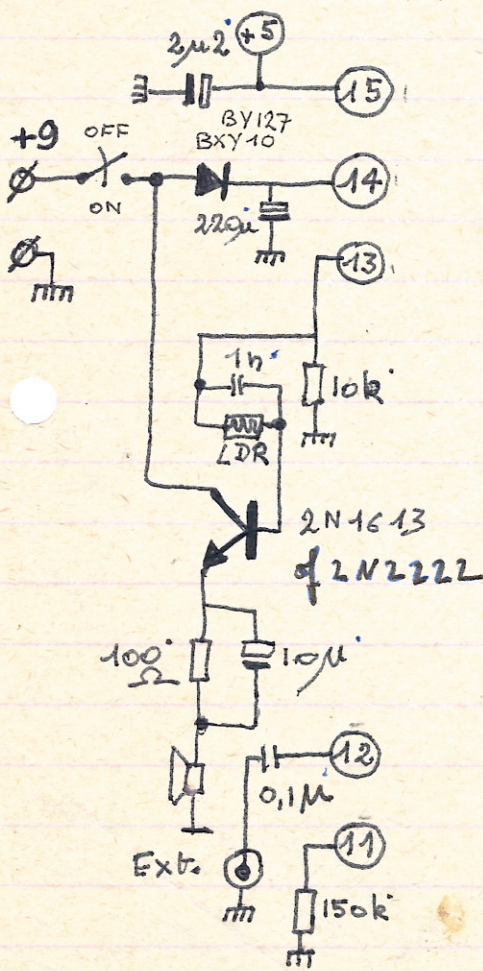 +5
2µ2
15
BY127
BXY10
+9
OFF
ON
14
220µ
13
1n
10k
LDR
2N1613
of 2N2222
100
Ω
10µ
12
0,1µ
Ext.
11
150k